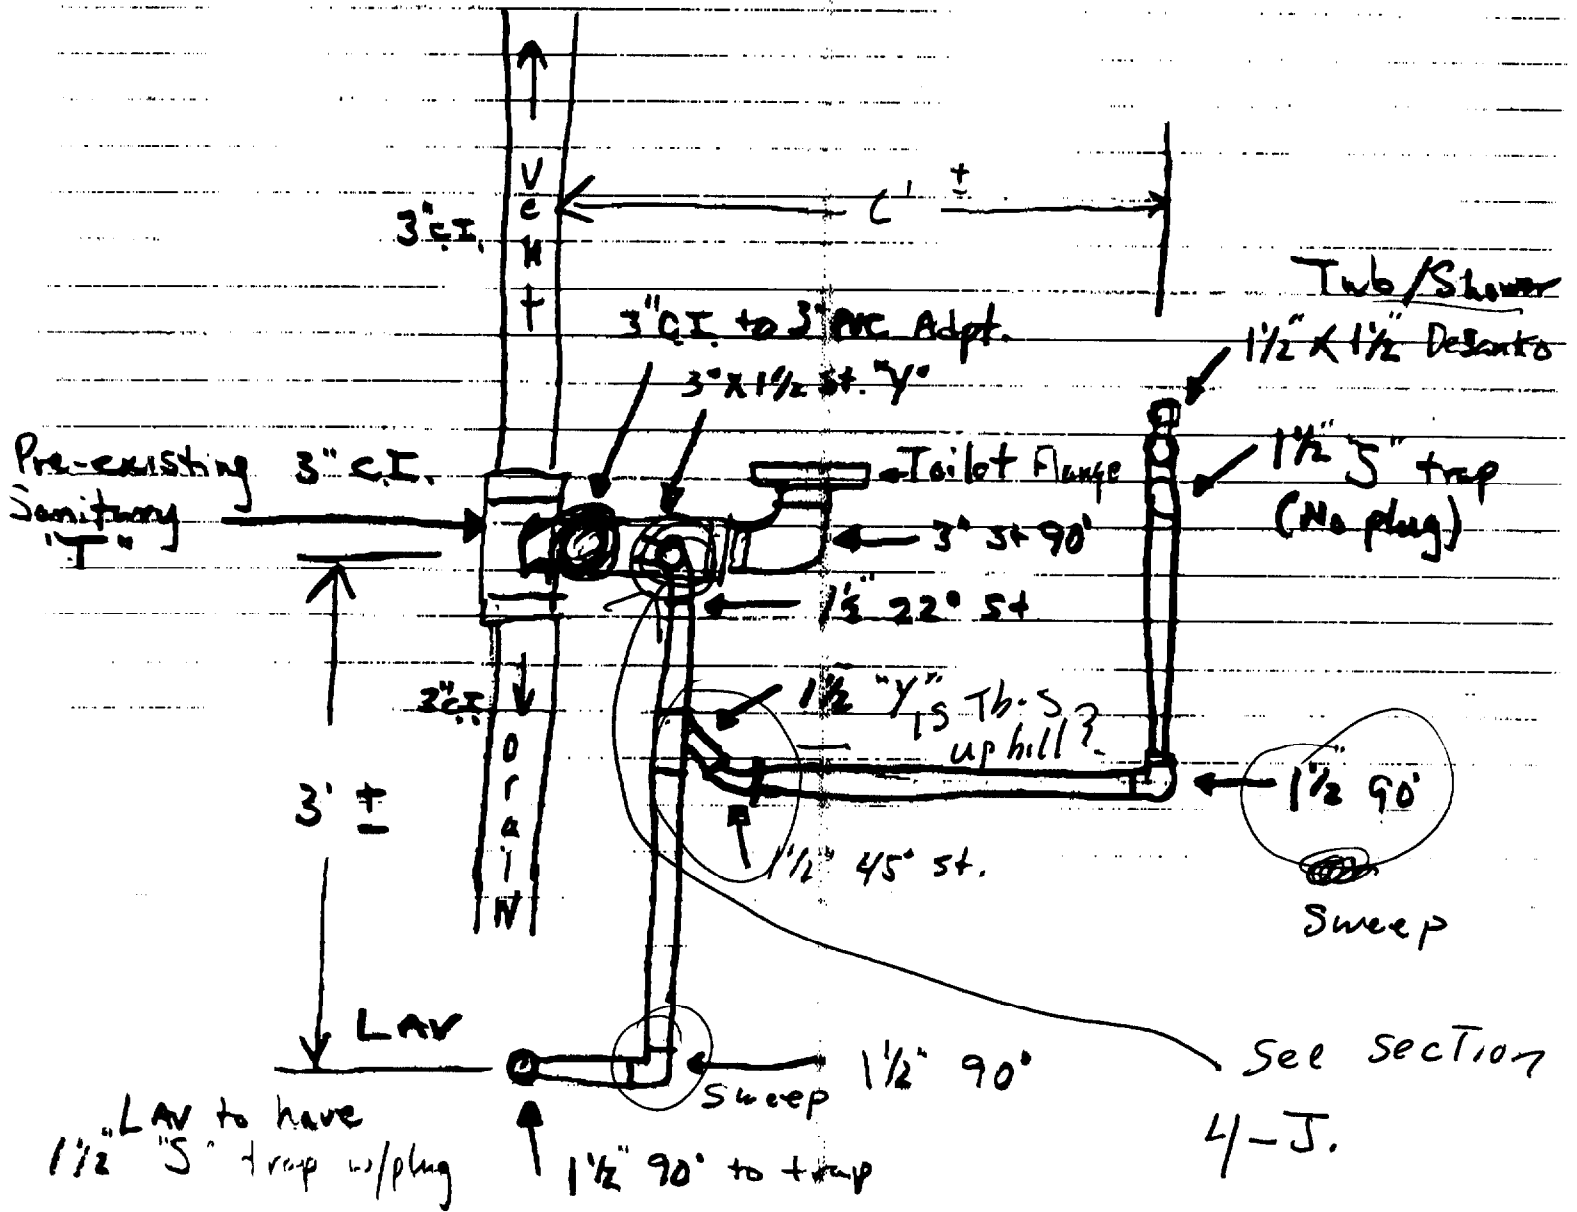 Vent
3" C.I.
6' ±
Tub/Shower
1½" X 1½" Desanko
3" C.I. to 3" PVC Adpt.
3" X 1½ St. "Y"
Pre-existing 3" C.I.
Sanitary
"T"
Toilet Flange
1½" "J" trap
(No plug)
3" St 90°
1½" 22° St
3" C.I.
Drain
1½ "Y"
is this
uphill?
3' ±
1½" 90°
Sweep
1½" 45° St.
LAV
Sweep
1½" 90°
See Section
4-J.
LAV to have
1½" "J" trap w/plug
1½" 90° to trap